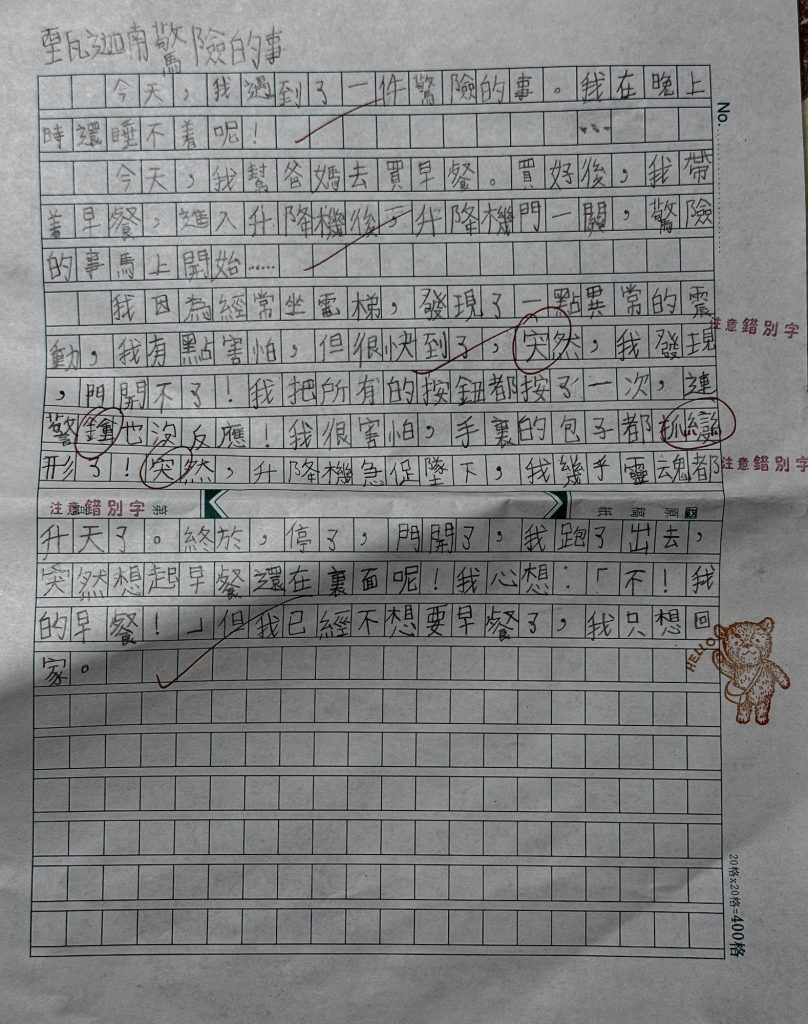 亜瓦迦南驚險的事
No.
今天，我遇到了一件驚險的事。我在晚上
時還睡不着呢！
今天，我幫爸媽去買早餐。買好後，我帶
着早餐，進入升降機後，升降機門一關，驚險
的事馬上開始……
我因為經常坐電梯，發現了一點異常的震
動，我有點害怕，但很快到了，突然，我發現
，門開不了！我把所有的按鈕都按了一次，連
警鍾也沒反應！我很害怕，手裏的包子都抓變
形了！突然，升降機急促墜下，我幾乎靈魂都
升天了。終於，停了，門開了，我跑了出去，
突然想起早餐還在裏面呢！我心想：「不！我
的早餐！」但我已經不想要早餐了，我只想回
家。
注意錯別字
注意錯別字
注意錯別字
第 頁
原稿紙
HELLO
20格x20格=400格